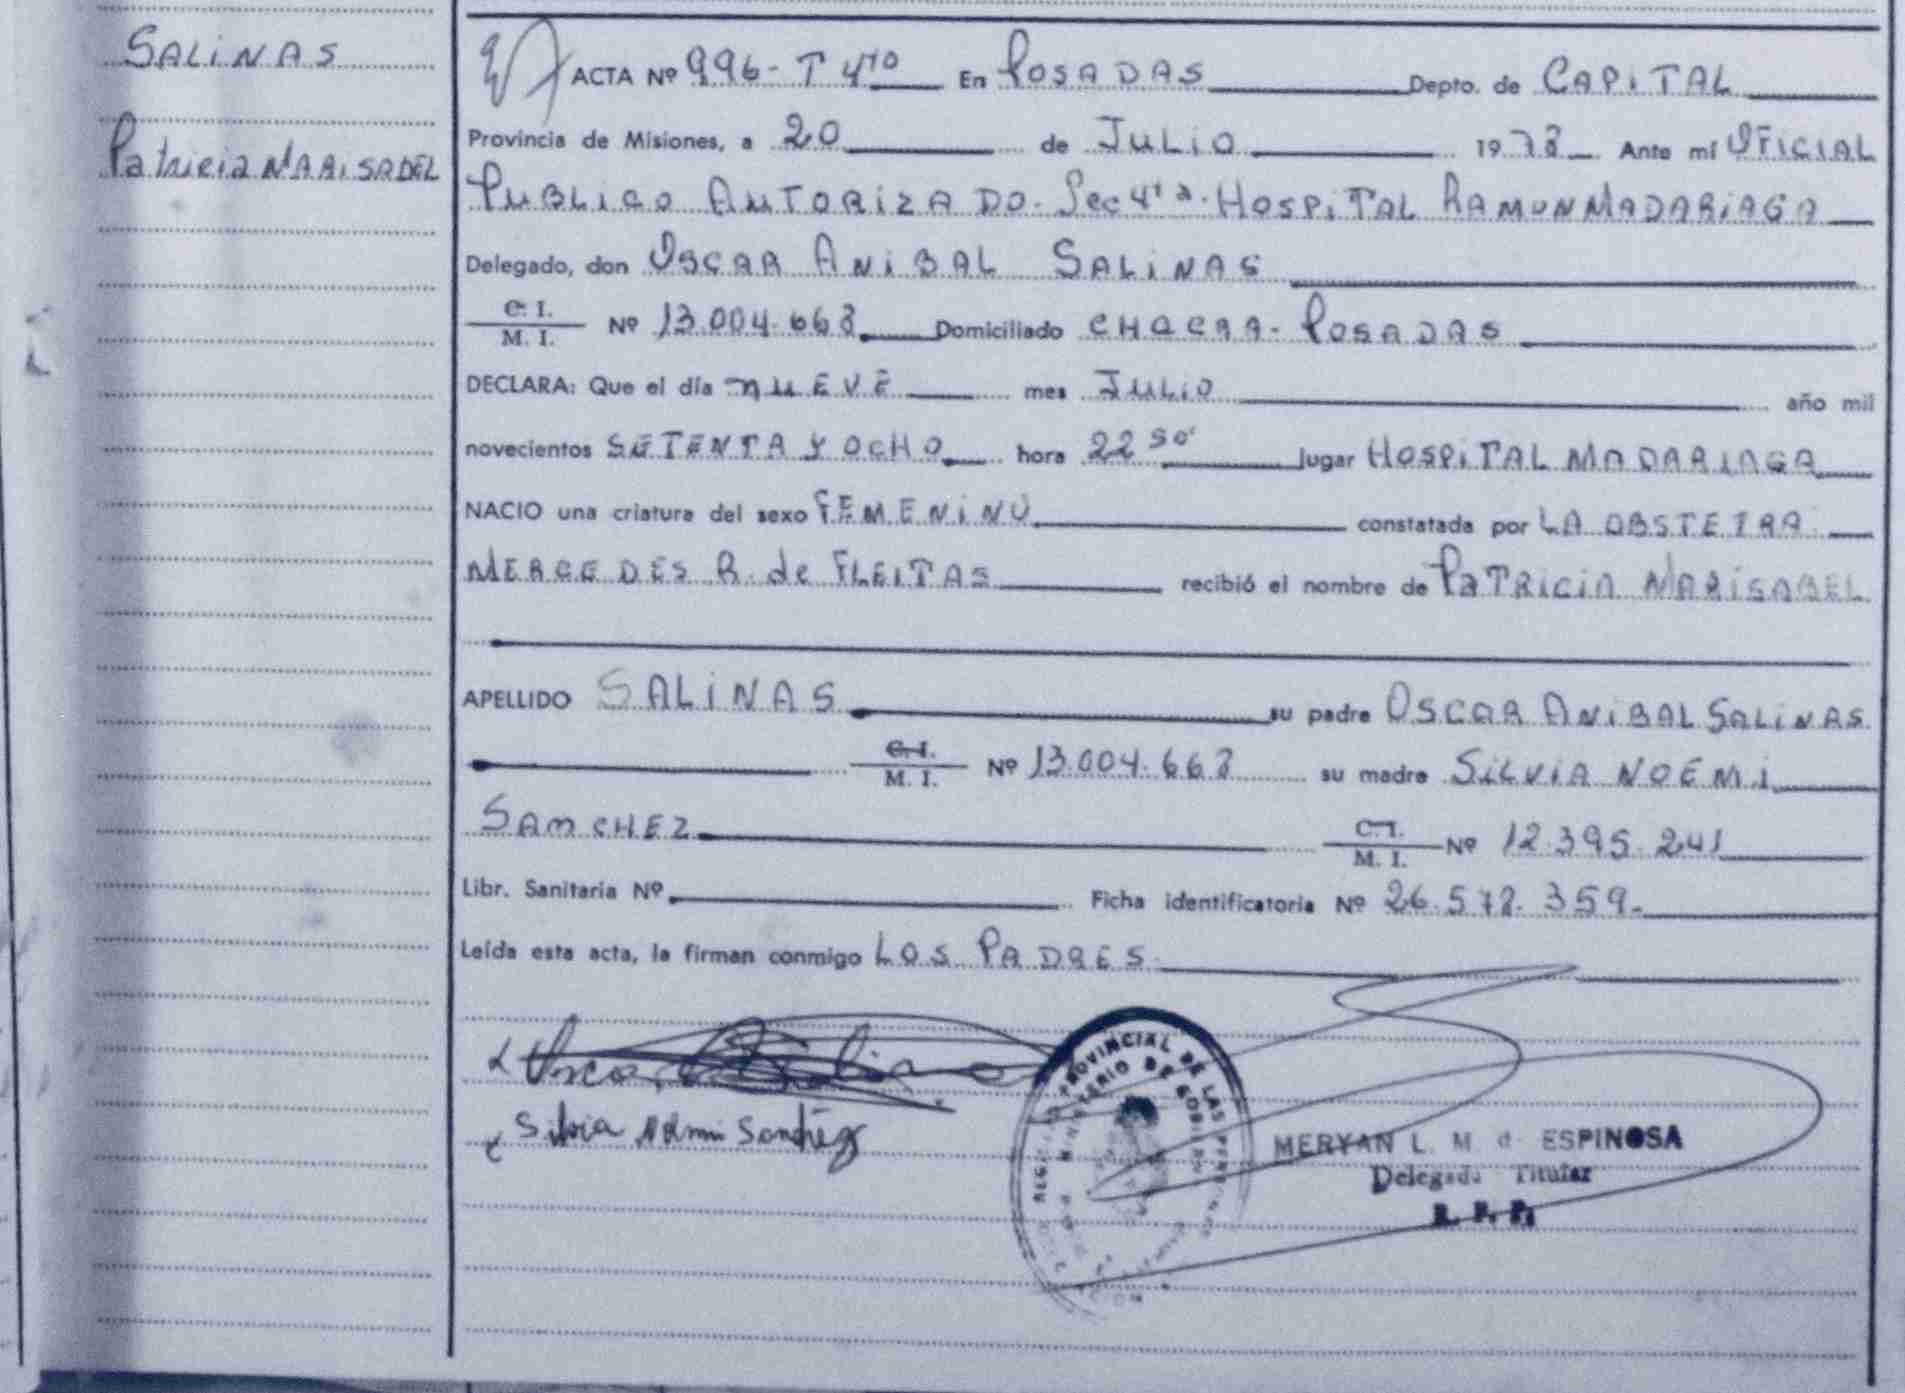 SALINAS
Patricia MARISABEL
ACTA Nº 996- T 4to En POSADAS Depto. de CAPITAL
Provincia de Misiones, a 20 de JULIO 1978 Ante mi OFICIAL
PUBLICO AUTORIZADO. Sec 4ta. HOSPITAL RAMON MADARIAGA
Delegado, don OSCAR ANIBAL SALINAS
C. I.
M. I. Nº 13.004.668 Domiciliado CHACRA- POSADAS
DECLARA: Que el día NUEVE mes JULIO año mil
novecientos SETENTA Y OCHO hora 22 50' lugar HOSPITAL MADARIAGA
NACIO una criatura del sexo FEMENINO constatada por LA OBSTETRA
MERCEDES R. de FLEITAS recibió el nombre de PATRICIA MARISABEL
APELLIDO SALINAS su padre OSCAR ANIBAL SALINAS
C. I.
M. I. Nº 13.004.668 su madre SILVIA NOEMI
SANCHEZ C. I.
M. I. Nº 12.395.241
Libr. Sanitaria Nº Ficha identificatoria Nº 26.578.359.
Leída esta acta, la firman conmigo LOS PADRES
Silvia Noemi Sanchez
PROVINCIAL DE LAS PERSONAS
MINISTERIO DE GOBIERNO
MERYAN L. M. d ESPINOSA
Delegada Titular
R. P. P.